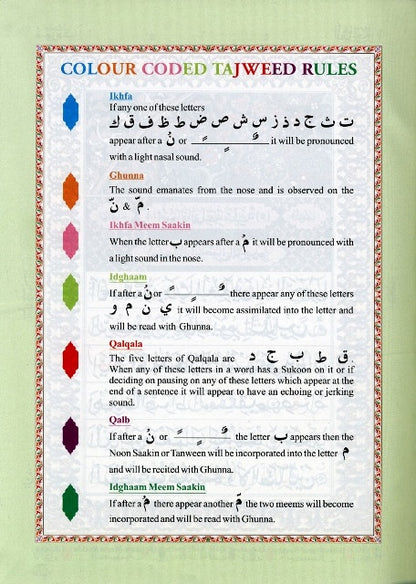 COLOUR CODED TAJWEED RULES
Ikhfa
If any one of these letters
ت ث ج د ذ ز س ش ص ض ط ظ ف ق ك
appear after a نْ or ـًـ ـٍـ ـٌـ it will be pronounced
with a light nasal sound.
Ghunna
The sound emanates from the nose and is observed on the
نّ & مّ .
Ikhfa Meem Saakin
When the letter ب appears after a مْ it will be pronounced with
a light sound in the nose.
Idghaam
If after a نْ or ـًـ ـٍـ ـٌـ there appear any of these letters
ي ن م و it will become assimilated into the letter and
will be read with Ghunna.
Qalqala
The five letters of Qalqala are ق ط ب ج د .
When any of these letters in a word has a Sukoon on it or if
deciding on pausing on any of these letters which appear at the
end of a sentence it will appear to have an echoing or jerking
sound.
Qalb
If after a نْ or ـًـ ـٍـ ـٌـ the letter ب appears then the
Noon Saakin or Tanween will be incorporated into the letter م
and will be recited with Ghunna.
Idghaam Meem Saakin
If after a مْ there appear another مّ the two meems will become
incorporated and will be read with Ghunna.